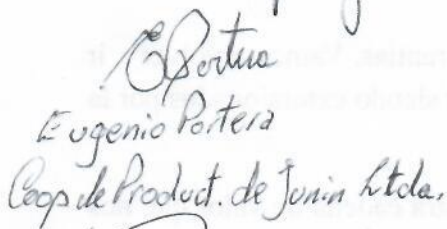 EPortera
Eugenio Portera
Coop de Product. de Junin Ltda.